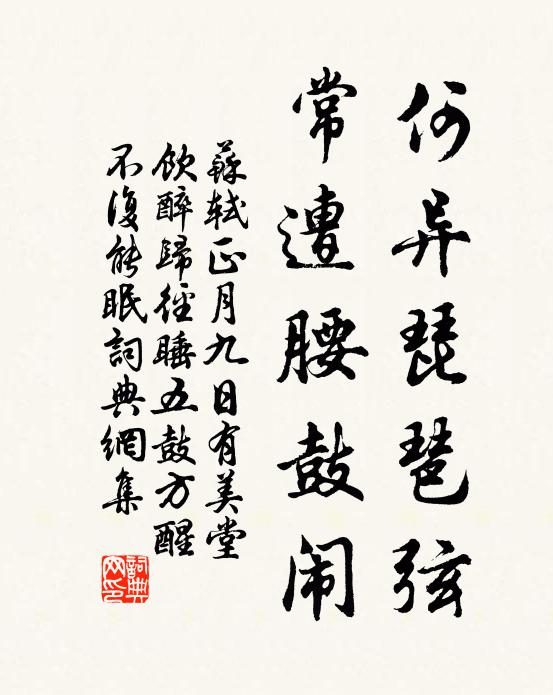 何异琵琶弦
常遭腰鼓闹
蘇軾正月九日有美堂
飲醉歸徑睡五鼓方醒
不復能眠詞典網集
詞典网印